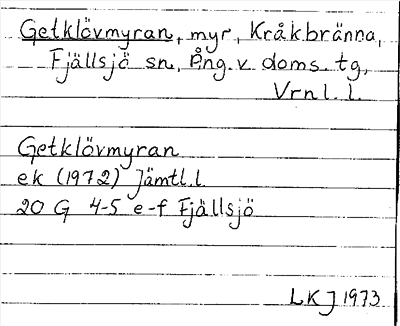 Getklövmyran, myr, Kråkbränna,
Fjällsjö sn, Ång. v. doms. tg,
Vrnl. l.
Getklövmyran
ek (1972) Jämtl. l.
20 G 4-5 e-f Fjällsjö
LKJ 1973